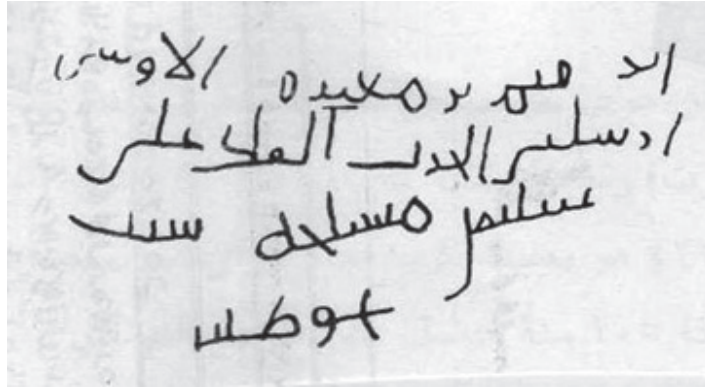 ابرهيم بن مغيره الاوسي
ارسلني الحرث الملك على
سليمن مسلحه سنت